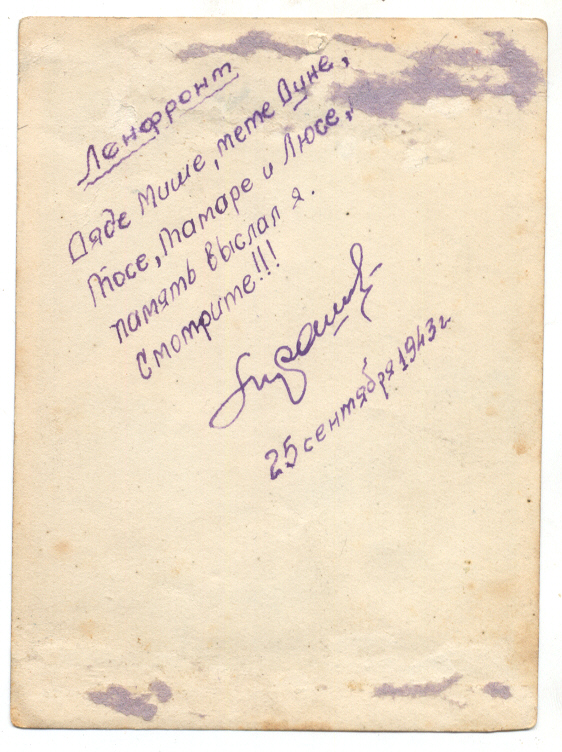 Ленфронт
Дяде Мише, тете Дуне,
Тосе, Тамаре и Люсе,
память выслал я.
Смотрите!!!
25 сентября 1943 г.